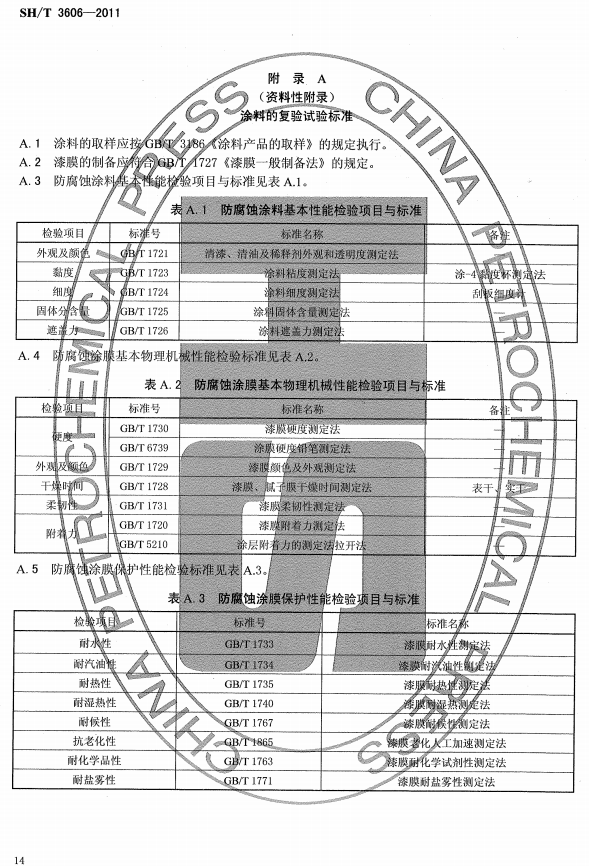 SH/T 3606—2011
附 录 A
(资料性附录)
涂料的复验试验标准
A. 1 涂料的取样应按 GB/T 3186《涂料产品的取样》的规定执行。
A. 2 漆膜的制备应符合 GB/T 1727《漆膜一般制备法》的规定。
A. 3 防腐蚀涂料基本性能检验项目与标准见表 A.1。
表 A. 1 防腐蚀涂料基本性能检验项目与标准
检验项目 标准号 标准名称 备注
外观及颜色 GB/T 1721 清漆、清油及稀释剂外观和透明度测定法
黏度 GB/T 1723 涂料粘度测定法 涂-4 黏度杯测定法
细度 GB/T 1724 涂料细度测定法 刮板细度计
固体分含量 GB/T 1725 涂料固体含量测定法 —
遮盖力 GB/T 1726 涂料遮盖力测定法 —
A. 4 防腐蚀涂膜基本物理机械性能检验标准见表 A.2。
表 A. 2 防腐蚀涂膜基本物理机械性能检验项目与标准
检验项目 标准号 标准名称 备注
硬度 GB/T 1730 漆膜硬度测定法 —
GB/T 6739 涂膜硬度铅笔测定法 —
外观及颜色 GB/T 1729 漆膜颜色及外观测定法 —
干燥时间 GB/T 1728 漆膜、腻子膜干燥时间测定法 表干、实干
柔韧性 GB/T 1731 漆膜柔韧性测定法 —
附着力 GB/T 1720 漆膜附着力测定法 —
GB/T 5210 涂层附着力的测定法拉开法 —
A. 5 防腐蚀涂膜保护性能检验标准见表 A.3。
表 A. 3 防腐蚀涂膜保护性能检验项目与标准
检验项目 标准号 标准名称
耐水性 GB/T 1733 漆膜耐水性测定法
耐汽油性 GB/T 1734 漆膜耐汽油性测定法
耐热性 GB/T 1735 漆膜耐热性测定法
耐湿热性 GB/T 1740 漆膜耐湿热测定法
耐候性 GB/T 1767 漆膜耐候性测定法
抗老化性 GB/T 1865 漆膜老化人工加速测定法
耐化学品性 GB/T 1763 漆膜耐化学试剂性测定法
耐盐雾性 GB/T 1771 漆膜耐盐雾性测定法
14
CHINA PETROCHEMICAL PRESS
CHINA PETROCHEMICAL PRESS